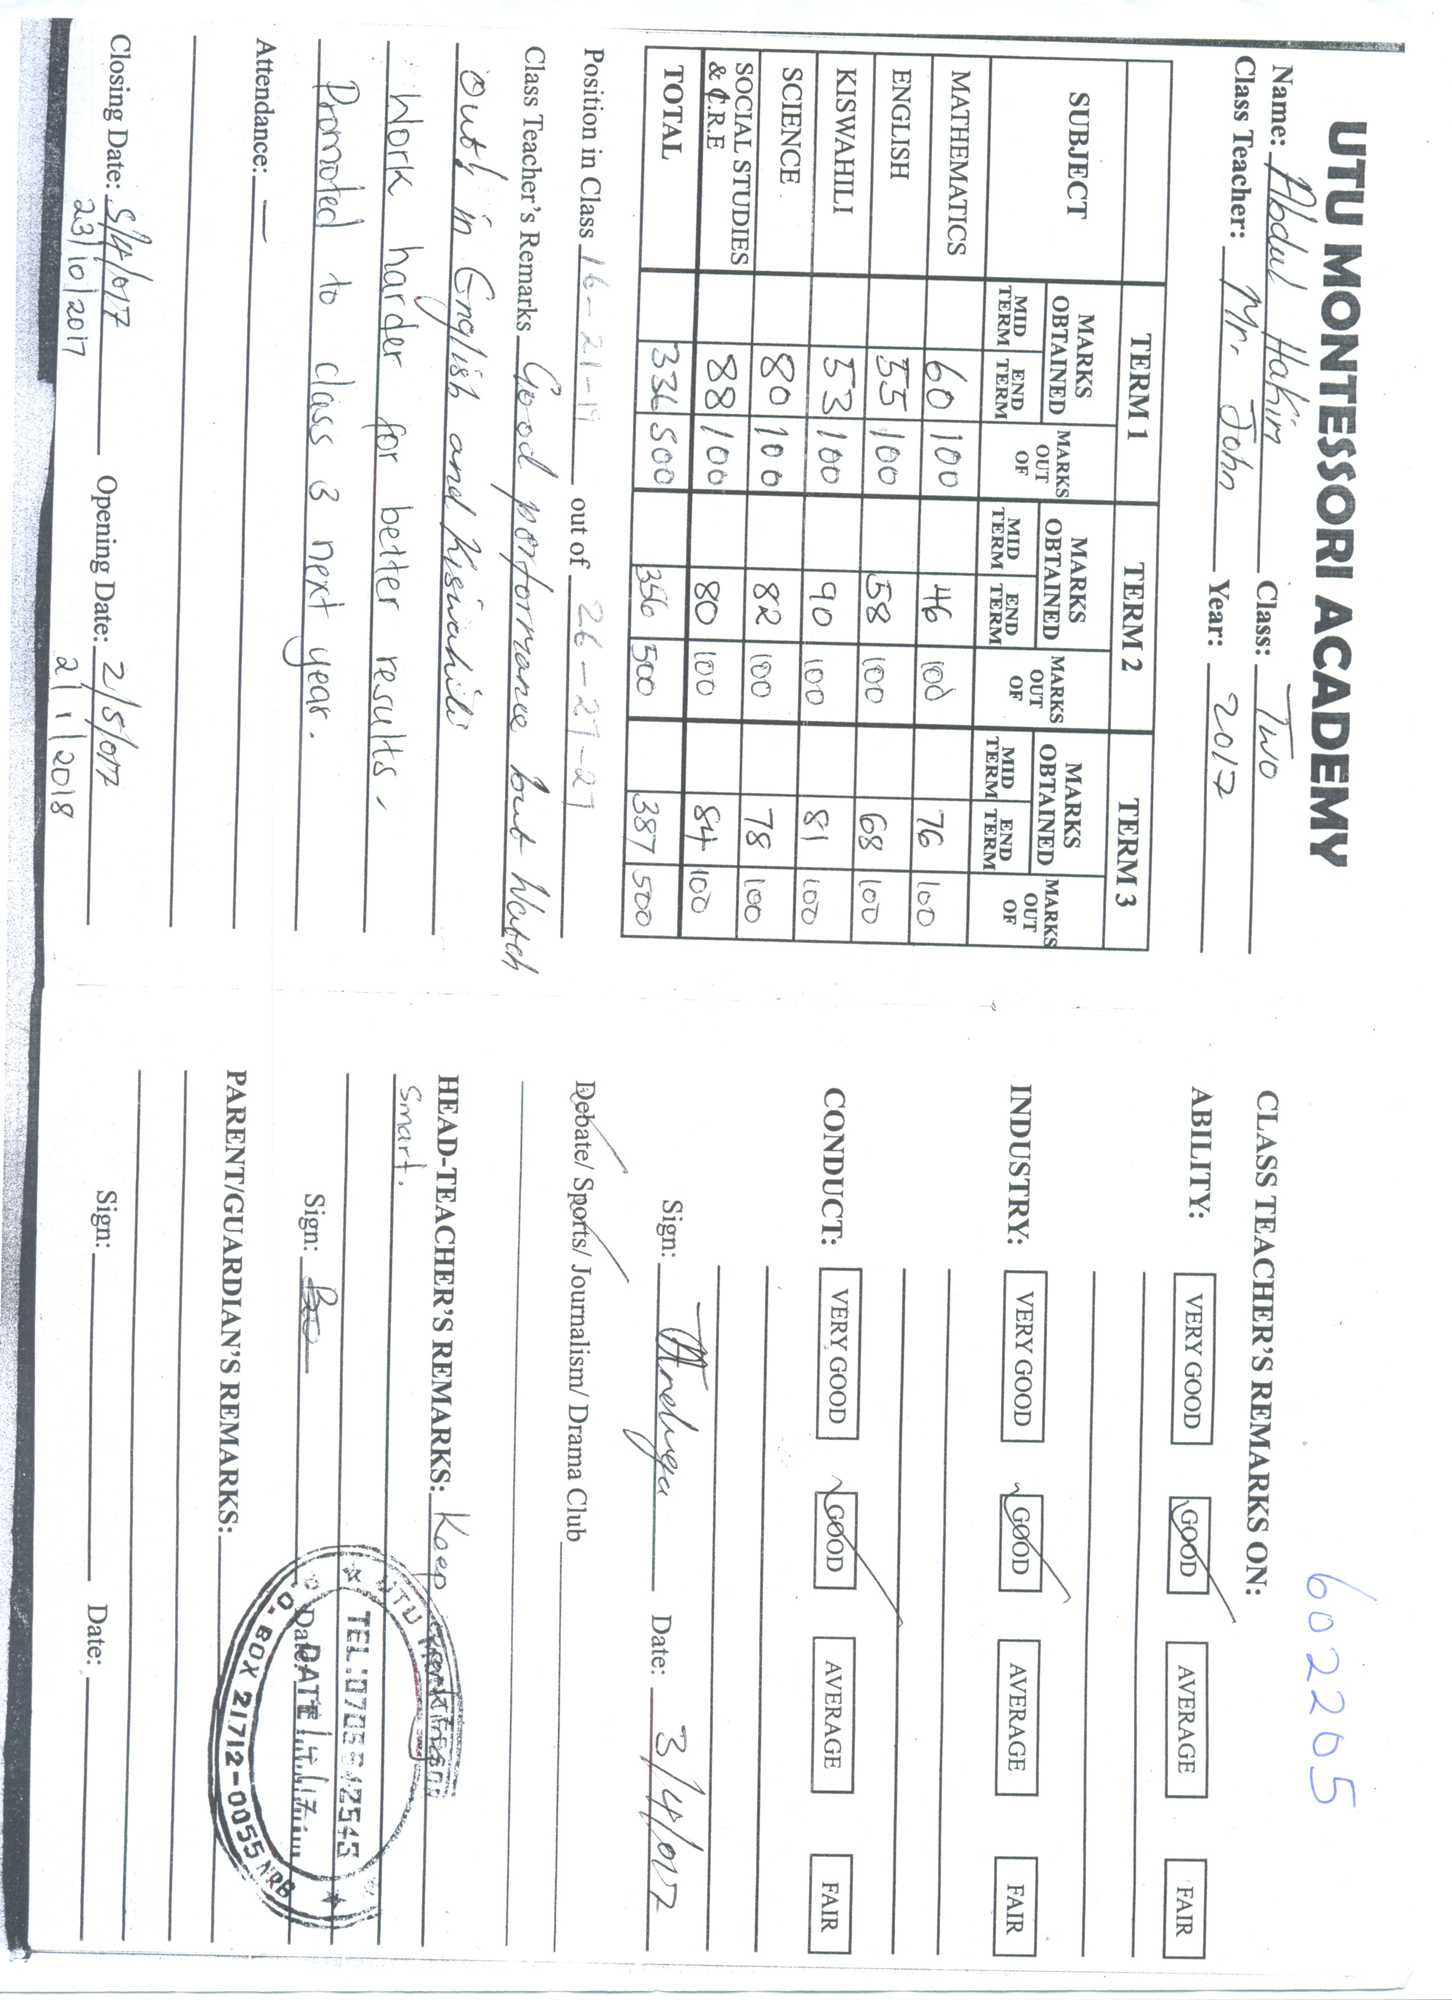 UTU MONTESSORI ACADEMY
Name: Abdul Hakim Class: Two
Class Teacher: Mr. John Year: 2017
SUBJECT TERM 1 TERM 2 TERM 3
MARKS OBTAINED MARKS OUT OF MARKS OBTAINED MARKS OUT OF MARKS OBTAINED MARKS OUT OF
MID TERM END TERM MID TERM END TERM MID TERM END TERM
MATHEMATICS 60 100 46 100 76 100
ENGLISH 55 100 58 100 68 100
KISWAHILI 53 100 90 100 81 100
SCIENCE 80 100 82 100 78 100
SOCIAL STUDIES & C.R.E 88 100 80 100 84 100
TOTAL 336 500 356 500 387 500
Position in Class 16-21-19 out of 26-27-27
Class Teacher's Remarks Good performance but Watch
out in English and Kiswahili
Work harder for better results.
Promoted to class 3 next year.
Attendance: —
Closing Date: 5/4/017 Opening Date: 2/5/017
23/10/2017 2/1/2018
602205
CLASS TEACHER'S REMARKS ON:
ABILITY: VERY GOOD GOOD AVERAGE FAIR
INDUSTRY: VERY GOOD GOOD AVERAGE FAIR
CONDUCT: VERY GOOD GOOD AVERAGE FAIR
Sign: Date: 3/4/017
Debate/ Sports/ Journalism/ Drama Club
HEAD-TEACHER'S REMARKS: Keep
smart.
Sign: Date:
UTU
TEL:
DATE
P.O. BOX 21712-0055 NRB
PARENT/GUARDIAN'S REMARKS:
Sign: Date: